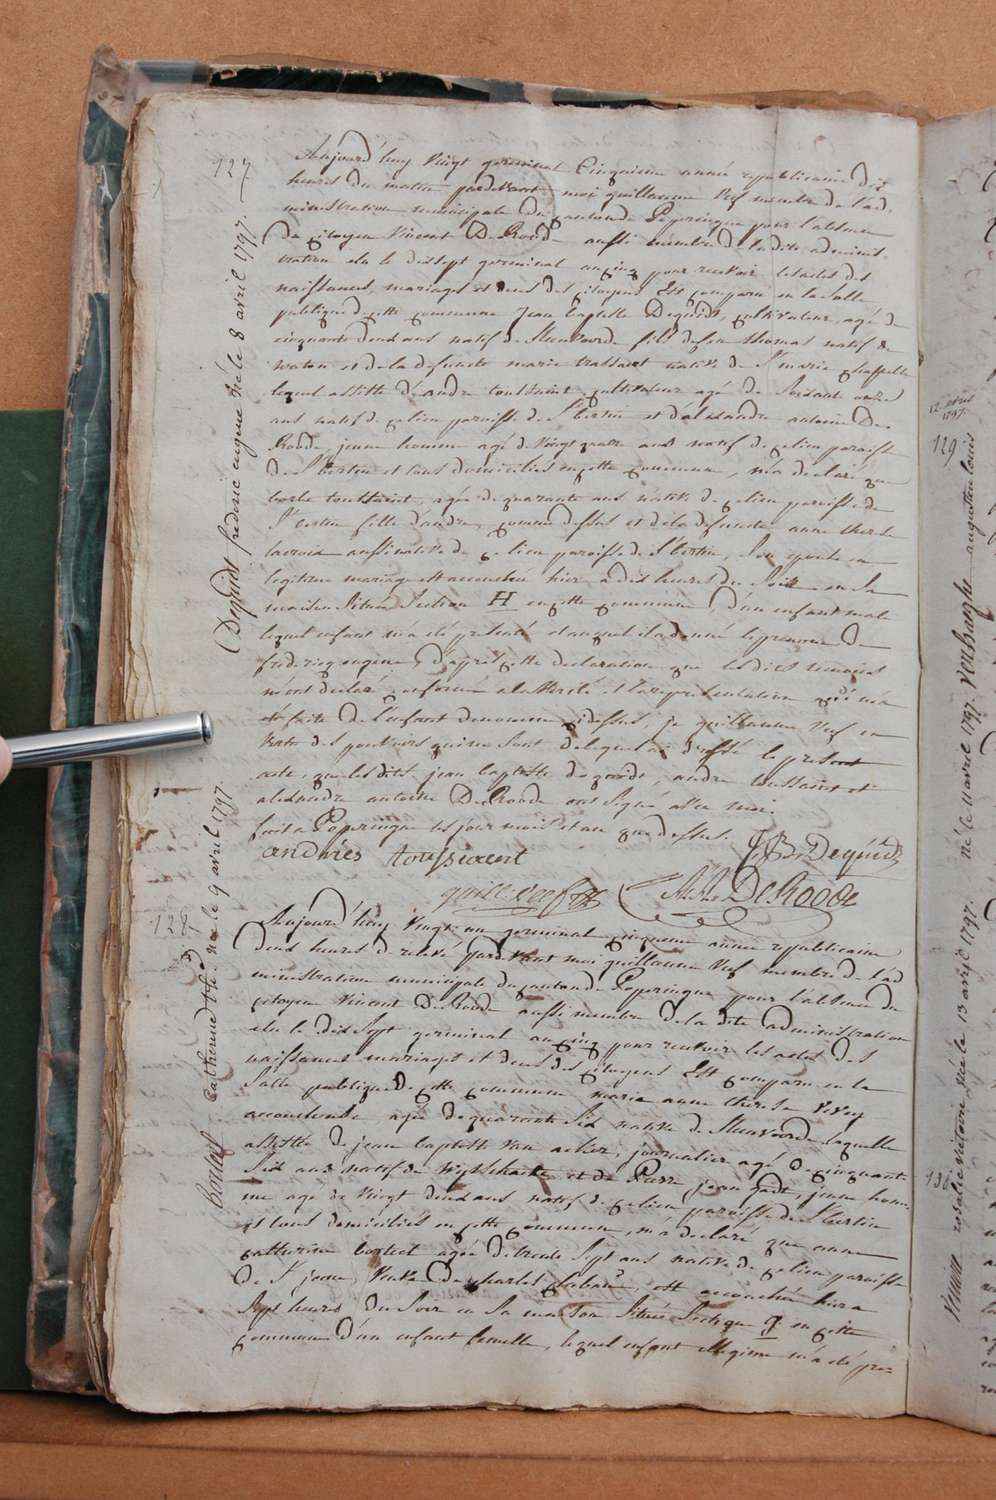 127
Dequidt frederic eugene né le 8 avril 1797.
Aujourd'huy Vingt germinal Cinquieme année republicaine dix
heures du matin pardevant moi guillaume Vef membre de l'ad
ministration municipale du canton de Poperingue pour l'absence
du citoyen Vincent DeRoode aussi membre de la dite adminis
tration elu le dixsept germinal an cinq pour recevoir les actes des
naissances, mariages et deces des citoyens Est comparu en la Salle
publique de cette commune Jean baptiste Dequidt, cultivateur, agé de
cinquante deux ans natif de Steenvoorde fils de feu thomas natif de
waton et de la defuncte marie trassaert native de St marie chappelle
lequel assisté d'andre toussaint cultivateur agé de Soixant onze
ans natif de ce lieu paroisse de St bertin et d'alexandre antoine De
Roode jeune homme agé de Vingt quatre ans natif de ce lieu paroisse
de St bertin et tous domiciliés en cette commune, m'a declaré que
toussaint, agée de quarante ans native de ce lieu paroisse de
St bertin fille d'andre, comme dessus et de la defuncte anne therese
lacroix aussi native de ce lieu paroisse de St bertin, Son epouse en
legitime mariage est accouchée hier a dix heures du Soir en Sa
maison Située Section H en cette commune, d'un enfant male
lequel enfant m'a eté presenté et auquel il a donné le prenom de
frederic eugene, d'apres cette declaration que les dits temoins
m'ont declaré conforme a la Verité et la representation qui m'a
eté faite de l'enfant denommé cidessus, je guillaume Vef en
Vertu des pouvoirs qui me sont delegués ai dressé le present
acte, que les dits jean baptiste dequidt, andre toussaint et
alexandre antoine DeRoode ont Signé avec moi
fait a Poperingue les jour mois et an que dessus.
andries toussaent J:B: Dequidt
guill. veef A:A: DeRoode
128
Bortel catherine née le 9 avril 1797.
Aujourd'huy Vingt un germinal cinquieme année republicaine
deux heures de relevé pardevant moi guillaume Vef membre de l'ad
ministration municipale du canton de Poperingue pour l'absence du
citoyen Vincent DeRoode aussi membre de la dite administration
elu le dix Sept germinal an cinq pour recevoir les actes des
naissances mariages et deces des citoyens Est comparu en la
Salle publique de cette commune marie anne therese
accoucheuse agée de quarante Six native de Steenvoorde laquelle
assistée de jean baptiste Van acker, journalier agé de cinquante
Six ans natif de wytschaete et de Pierre jean jeune hom
me agé de Vingt deux ans natif de ce lieu paroisse de St bertin
et tous domiciliés en cette commune, m'a declaré que anne
catherine bortel agée de trente Sept ans native de ce lieu paroisse
de St jean, Veuve de charles, est accouchée hier a
Sept heures du Soir en Sa maison Située Section g en cette
commune d'un enfant femelle, lequel enfant illegitime m'a eté pre-
12 avril
1797.
129
Verhaeghe augustin louis né le 11 avril 1797.
130
rosalie victoire née le 13 avril 1797.